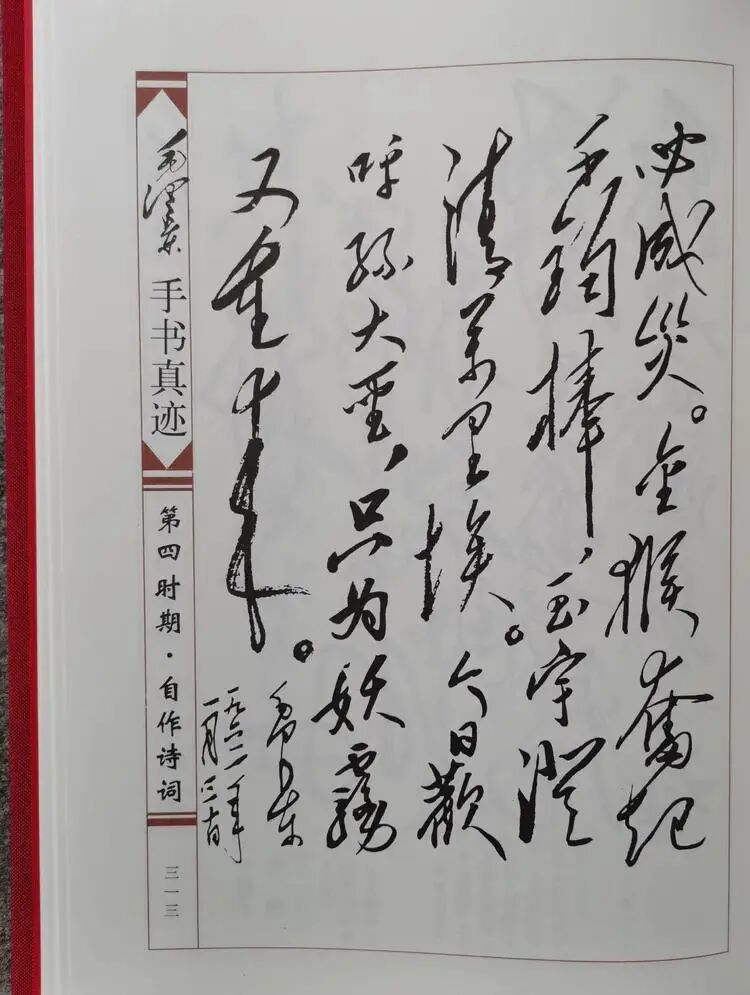 必成災。金猴奮起
千鈞棒,玉宇澄
清萬里埃。今日歡
呼孫大聖,只为妖霧
又重来。
毛泽东
一九六二年
一月
毛泽东
手书真迹
第四时期·自作诗词
三一三